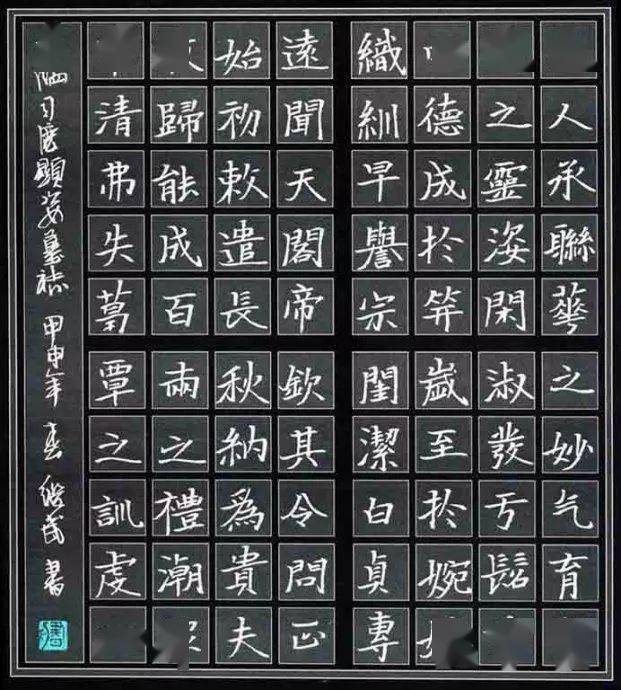 人承聯華之妙气育
之靈姿閑淑發亏髫
德成於笄歲至於婉
織紃早譽宗閨潔白貞專
遠聞天閣帝欽其令問正
始初敕遣長秋納為貴夫
歸能成百兩之禮潮
清弗失葛覃之訓虔
臨司馬顯姿墓志 甲申年 春 書